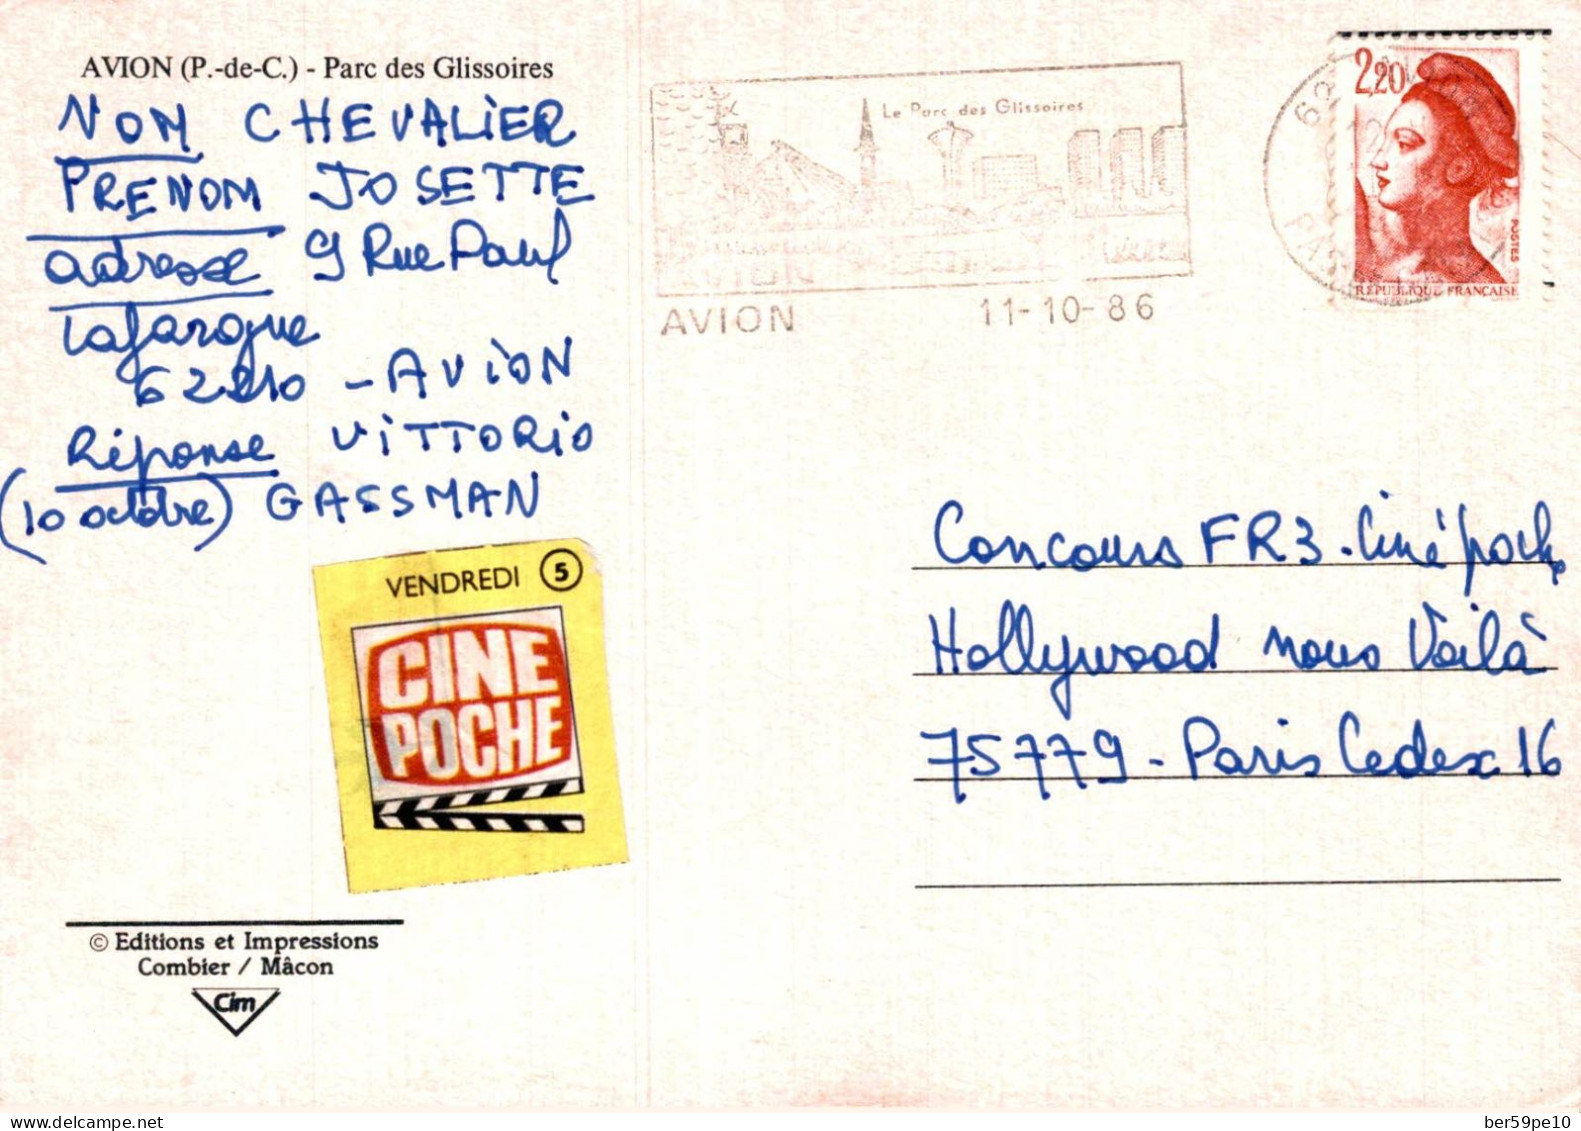 AVION (P.-de-C.) - Parc des Glissoires
NOM CHEVALIER
PRENOM JOSETTE
adresse 9 Rue Paul
Lafargue
62210 - AVION
Réponse VITTORIO
(10 octobre) GASSMAN
VENDREDI 5
CINE
POCHE
© Editions et Impressions
Combier / Mâcon
Cim
Le Parc des Glissoires
AVION
AVION 11-10-86
2,20
POSTES
REPUBLIQUE FRANCAISE
Concours FR3 - Ciné poche
Hollywood nous Voilà
75779 - Paris Cedex 16
ber59pe10